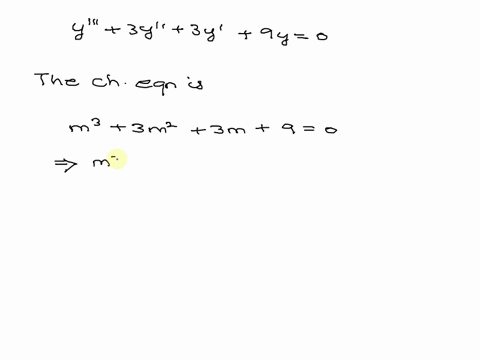 y''' + 3y'' + 3y' + 9y = 0
The ch. eqn is
m³ + 3m² + 3m + 9 = 0
⇒ m